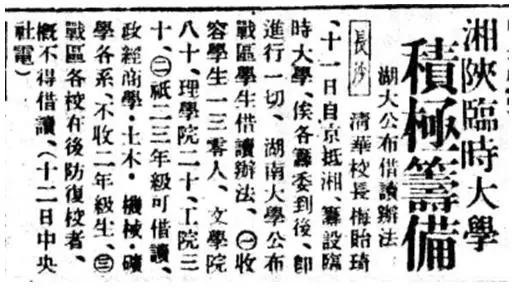 湘陝臨時大學
積極籌備
湖大公布借讀辦法
長沙 清華校長梅貽琦
、十一日自京抵湘、籌設臨
時大學、俟各籌委到後、即
進行一切、湖南大學公布
戰區學生借讀辦法、㊀收
容學生一三零人、文學院
八十、理學院二十、工院三
十、㊁祇二三年級可借讀、
政經商學·土木·機械·礦
學各系、不收二年級生、㊂
戰區各校在後防復校者、
概不得借讀、(十二日中央
社電)